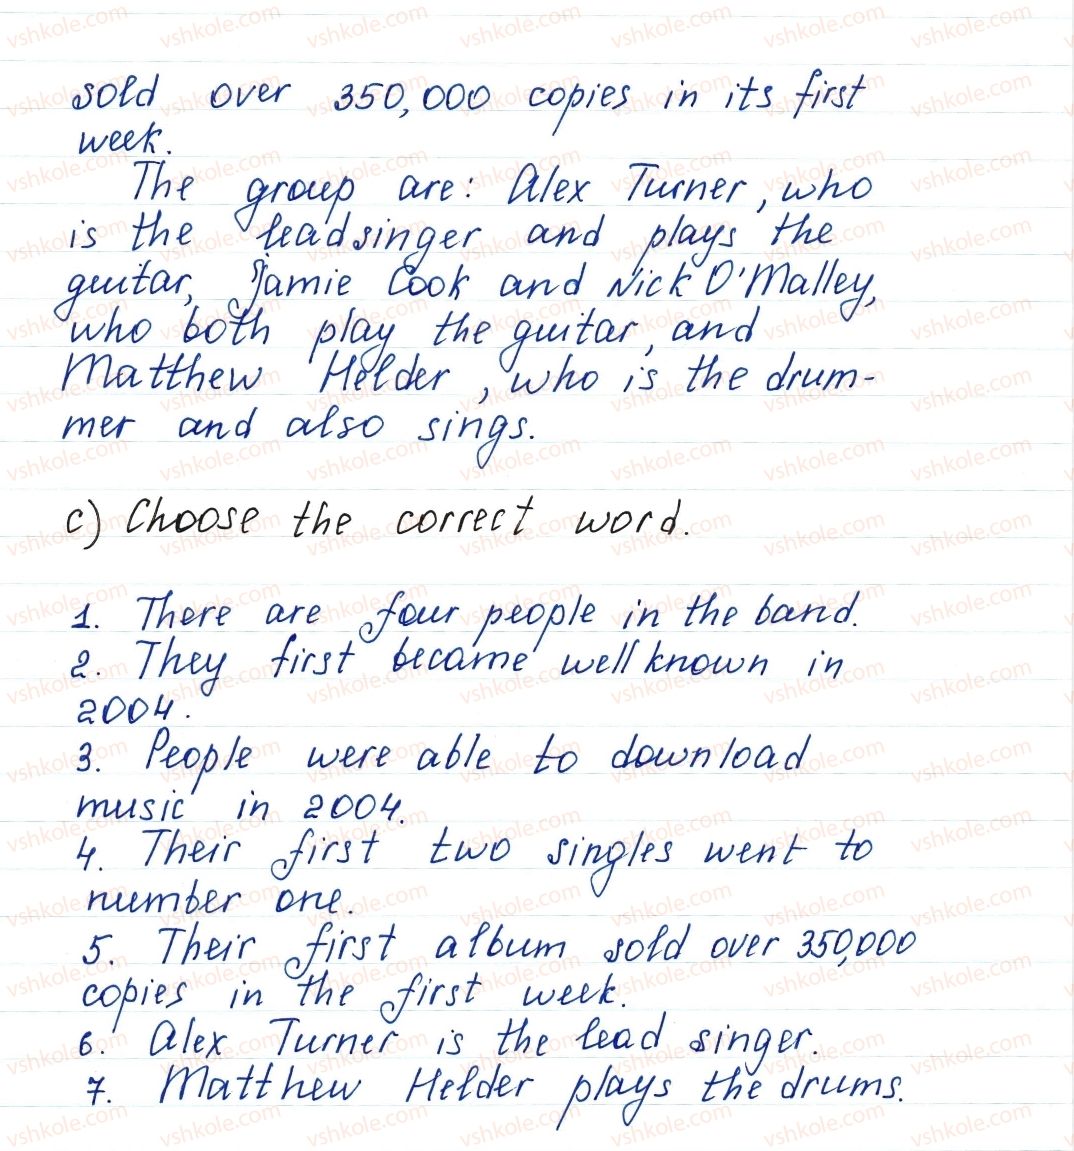 sold over 350,000 copies in its first
week.
The group are: Alex Turner, who
is the leadsinger and plays the
guitar, Jamie Cook and Nick O'Malley,
who both play the guitar, and
Matthew Helder, who is the drum-
mer and also sings.
c) Choose the correct word.
1. There are four people in the band.
2. They first became well known in
2004.
3. People were able to download
music in 2004.
4. Their first two singles went to
number one.
5. Their first album sold over 350,000
copies in the first week.
6. Alex Turner is the lead singer.
7. Matthew Helder plays the drums.
vshkole.com